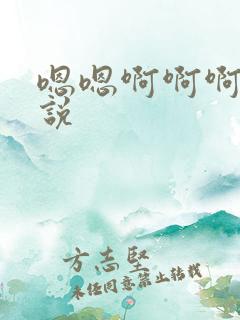 嗯嗯啊啊啊
說
方志堅
未经同意禁止转载